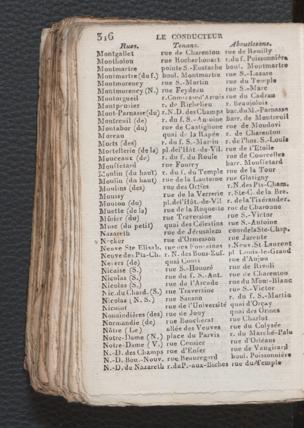 316 LE CONDUCTEUR
Rues. Tenans. Aboutissans.
Montgallet rue de Charenton rue de Reuilly
Montholon rue Rochechouart r. du f. Poissonnière
Montmartre pointe S.-Eustache boul. Montmartre
Montmartre (du f.) boul. Montmartre rue S.-Lazare
Montmorency rue S.-Martin rue du Temple
Montmorency (N.) rue Feydeau rue S.-Marc
Montorgueil rue du Cadran
Montpensier r. de Richelieu r. Beaujolois
Mont-Parnasse (du) r. N. D. des Champs bar. du M.-Parnasse
Montreuil (de) r. du f. S.-Antoine Barr. de Montreuil
Montabor (du) rue de Castiglione rue de Mondovi
Moreau quai de la Rapée r. de Charenton
Morts (des) r. du f. S.-Martin r. de l'hos. S.-Louis
Mortellerie (de la) pl. de l'Hôt.-de-Vil. rue de l'Etoile
Mouceaux (de) r. du f. du Roule rue de Courcelles
Mouffetard rue Fourcy barr. Mouffetard
Moulin (du haut) r. du f. du Temple rue de la Tour
Moulin (du haut) rue de la Lanterne rue Glatigny
Moulins (des) rue des Orties r. N. des Pts.-Cham.
Moussy rue de la Verrerie r. Ste-C. de la Bre.
Mouton (du) pl. de l'Hôt.-de-Vil. r. de la Tixérander.
Muette (de la) rue de la Roquette rue de Charonne
Mûrier (du) rue Traversine rue S.-Victor
Musc (du petit) quai des Célestins rue S.-Antoine
Nazareth rue de Jérusalem cour de la Ste-Chap.
Necker rue d'Ormesson rue Jarente
Neuve Ste Elisab. rue des Fontaines r. Neuv. St Laurent
Neuve des Pts-Ch. r. N. des Bons-Enf. pl. Louis-le-Grand
Nevers (de) quai Conti rue d'Anjou
Nicaise (S.) rue S.-Honoré rue de Rivoli
Nicolas (S.) rue du f. S.-Ant. rue de Charenton
Nicolas (S.) rue de l'Arcade rue du Mont-Blanc
Nic. du Chard. (S.) rue Traversine rue S.-Victor
Nicolas (N. S.) rue Sanson r. du f. S.-Martin
Nicolet rue de l'Université quai d'Orçay
Nonaindières (des) rue de Jouy quai des Ormes
Normandie (de) rue Boucherat rue Charlot
Nôtre (Le) allée des Veuves rue du Colysée
Notre-Dame (N.) place du Parvis r. du Marché-Palu
Notre-Dame (V.) rue Censier rue d'Orléans
N.-D. des Champs rue d'Enfer rue de Vaugirard
N.-D. Bon.-Nouv. rue Beauregard boul. Poissonnière
N.-D. de Nazareth r. du P.-aux-Biches rue du Temple